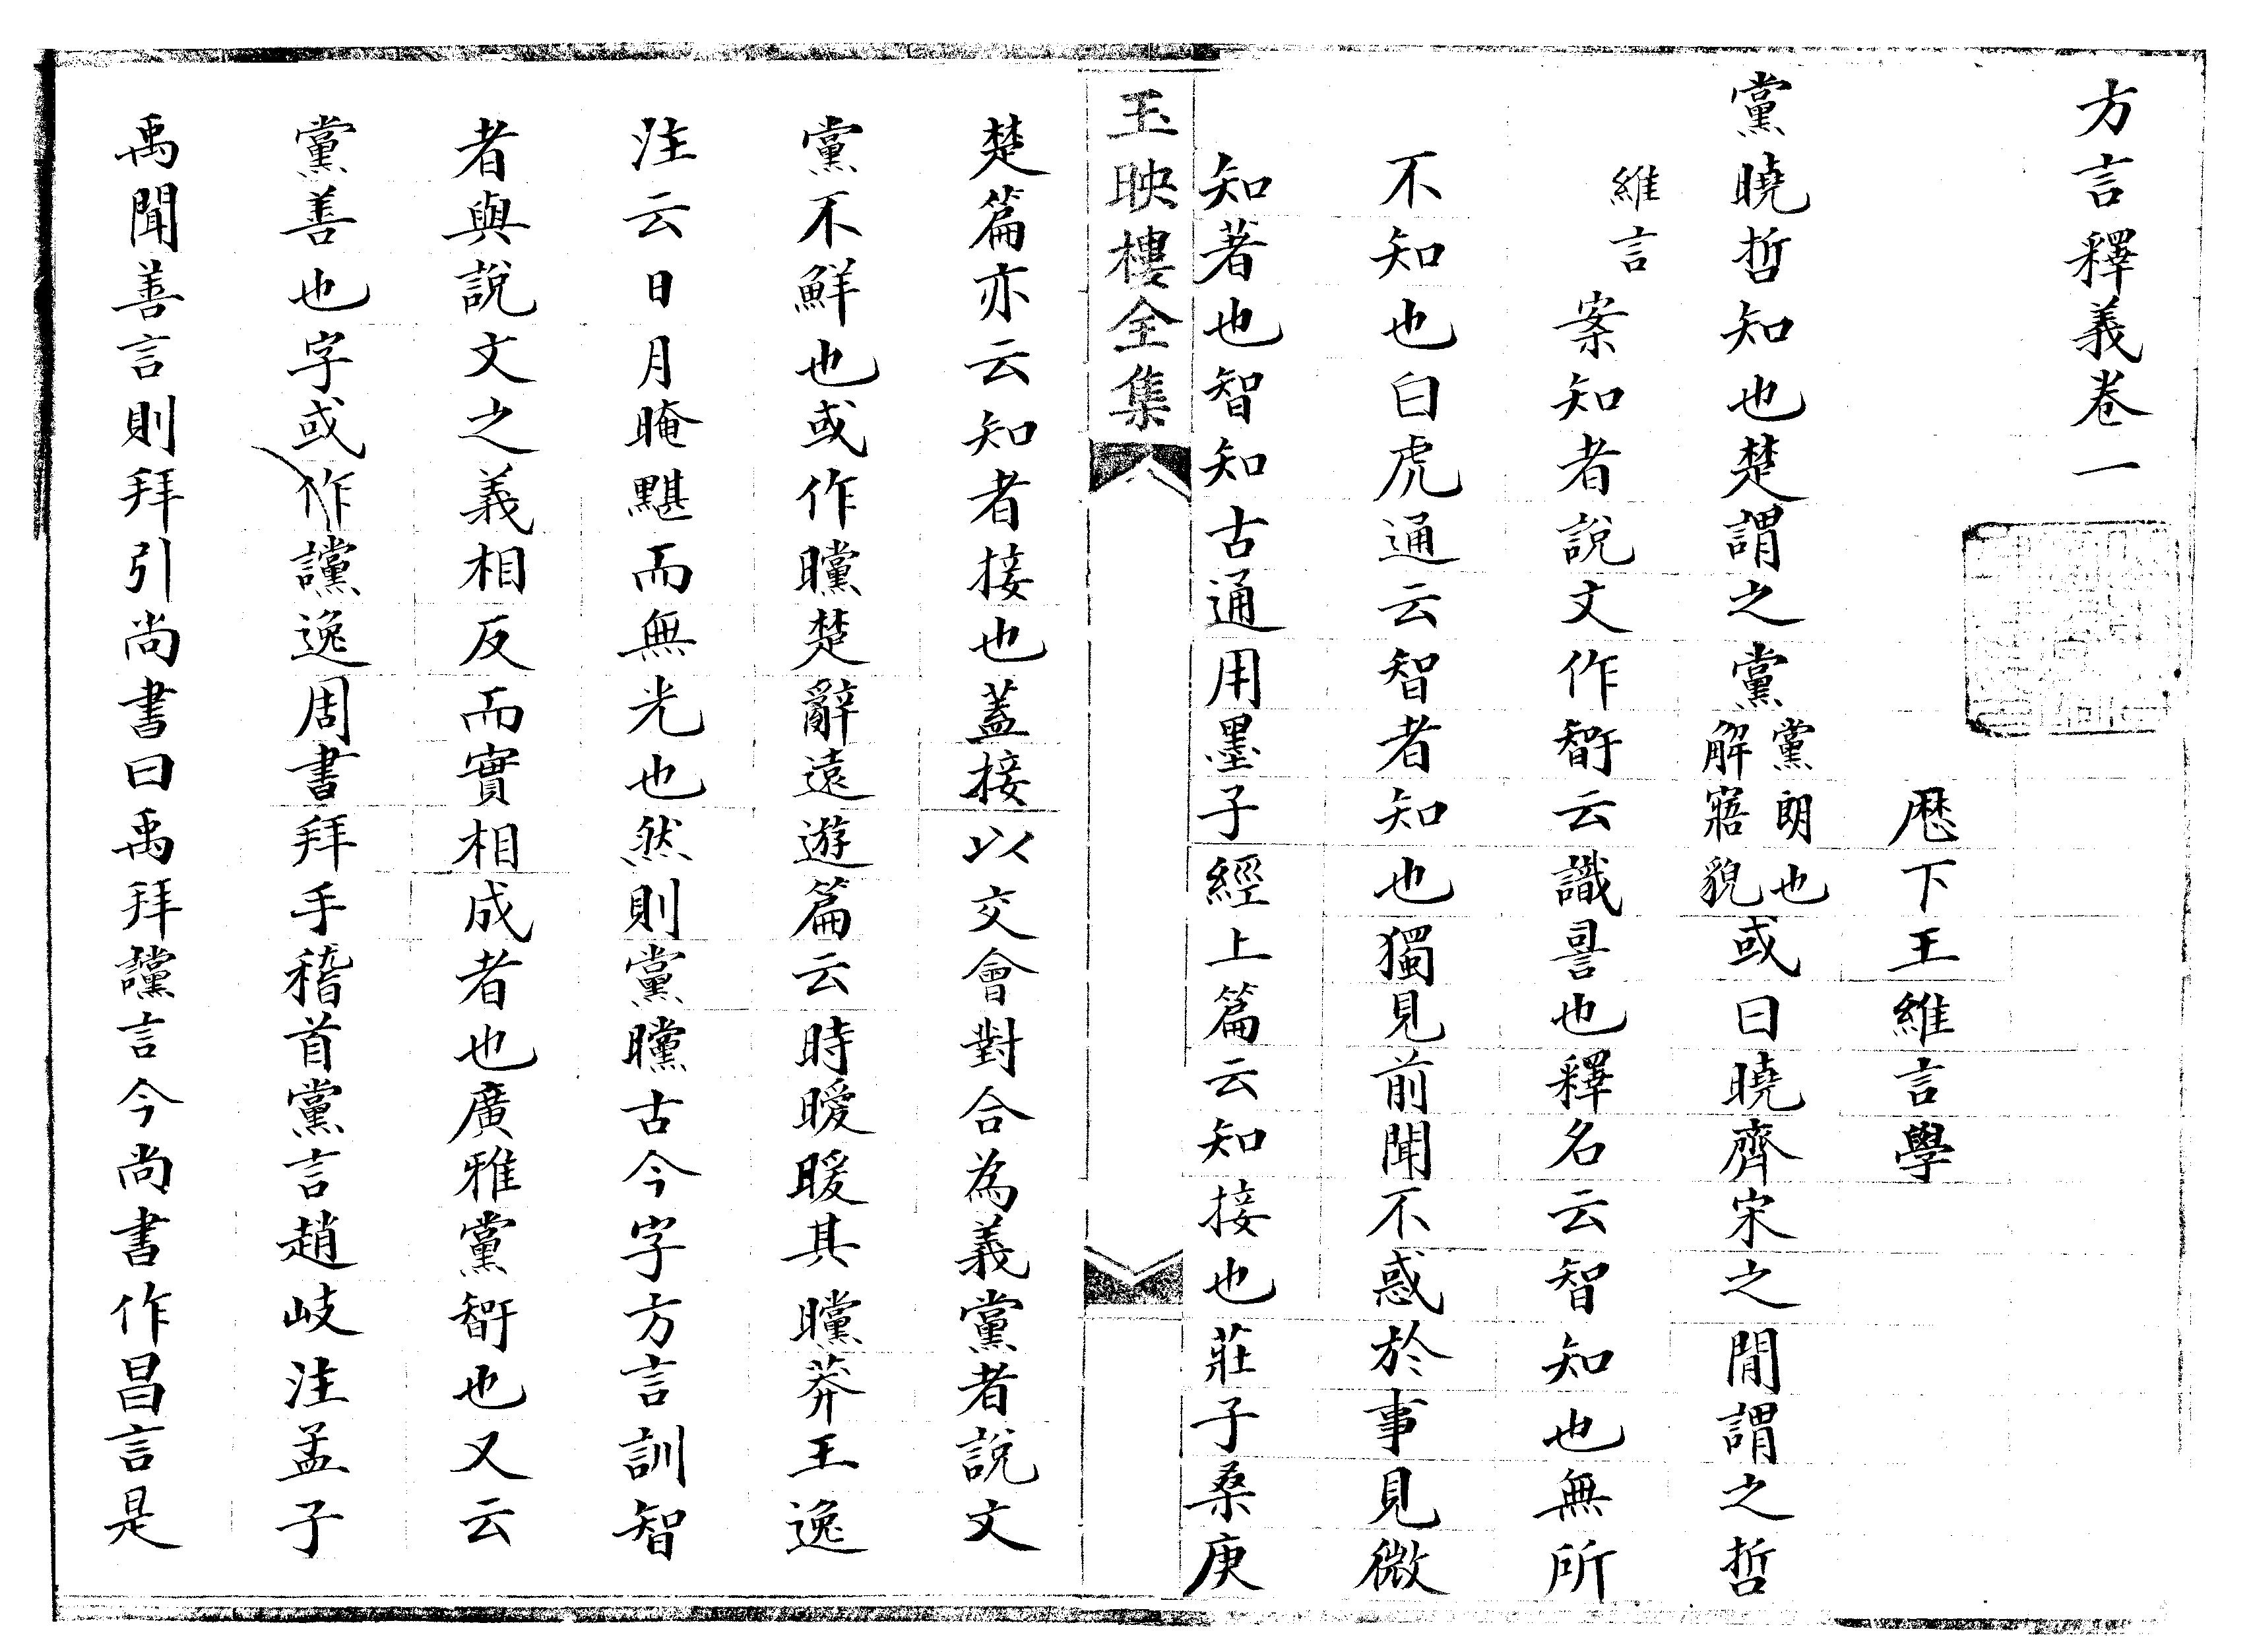 方言釋義卷一
歷下王維言學
黨曉哲知也楚謂之黨黨朗也解寤貌或曰曉齊宋之閒謂之哲
維言案知者說文作𥏼云識䛐也釋名云智知也無所
不知也白虎通云智者知也獨見前聞不惑於事見微
知著也智知古通用墨子經上篇云知接也莊子桑庚
玉映樓全集
楚篇亦云知者接也蓋接以交會對合為義黨者說文
黨不鮮也或作曭楚辭遠遊篇云時曖曖其曭莽王逸
注云日月晻黮而無光也然則黨曭古今字方言訓智
者與說文之義相反而實相成者也廣雅黨𥏼也又云
黨善也字或作讜逸周書拜手稽首黨言趙岐注孟子
禹聞善言則拜引尚書曰禹拜讜言今尚書作昌言是